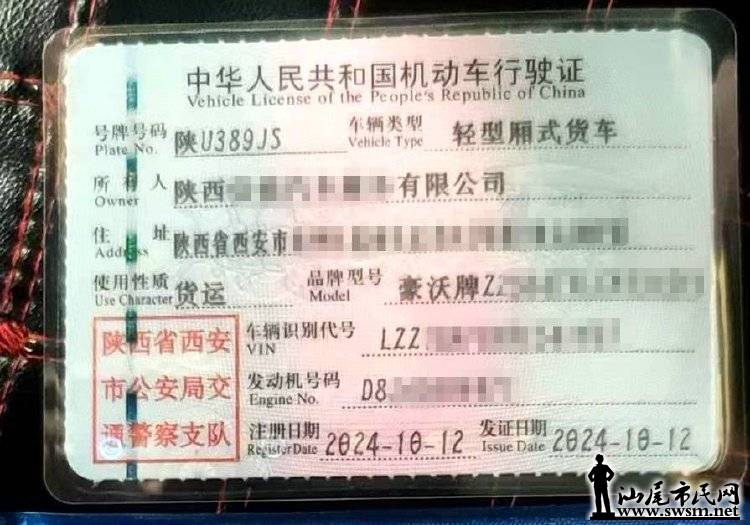 中华人民共和国机动车行驶证
Vehicle License of the People's Republic of China
号牌号码 陕U389JS 车辆类型 轻型厢式货车
Plate No. Vehicle Type
所有人 陕西 有限公司
Owner
住址 陕西省西安市
Address
使用性质 货运 品牌型号 豪沃牌ZZ
Use Character Model
陕西省西安 车辆识别代号 LZZ
VIN
市公安局交 发动机号码 D8
Engine No.
通警察支队 注册日期 2024-10-12 发证日期 2024-10-12
Register Date Issue Date
汕尾市民网
www.swsm.net